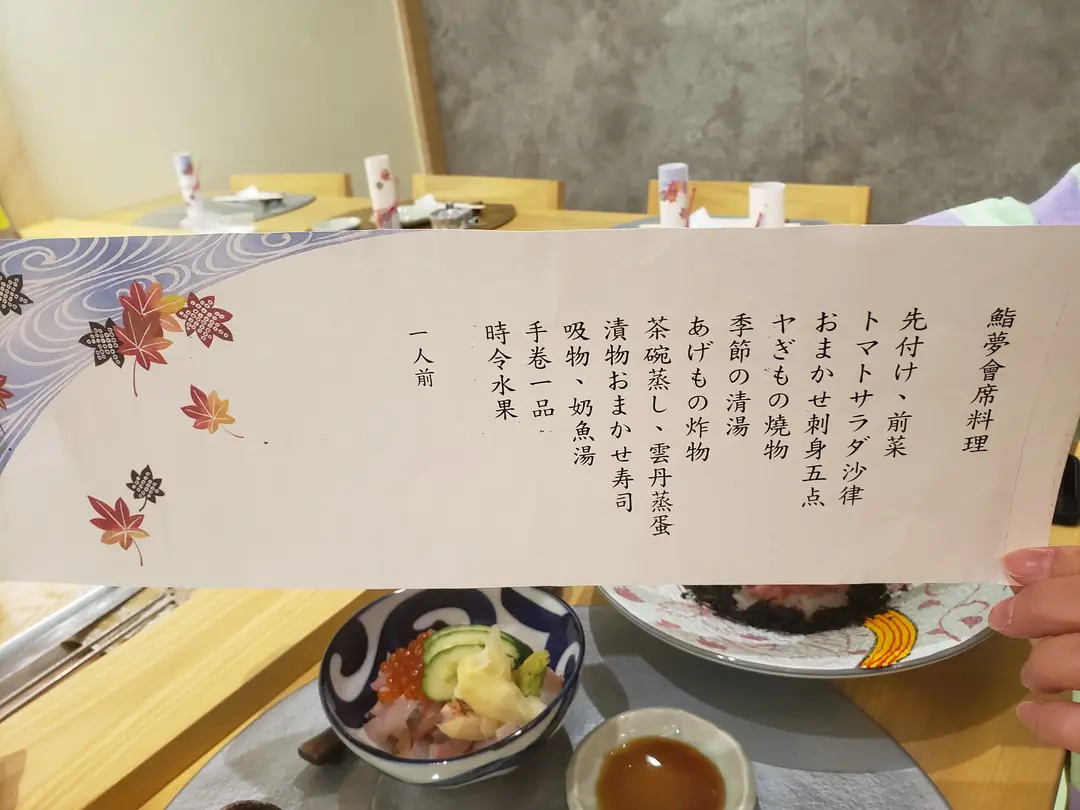 鮨夢會席料理
先付け、前菜
トマトサラダ沙律
おまかせ刺身五点
ヤぎもの燒物
季節の清湯
あげもの炸物
茶碗蒸し、雲丹蒸蛋
漬物おまかせ寿司
吸物、奶魚湯
手卷一品
時令水果
一人前